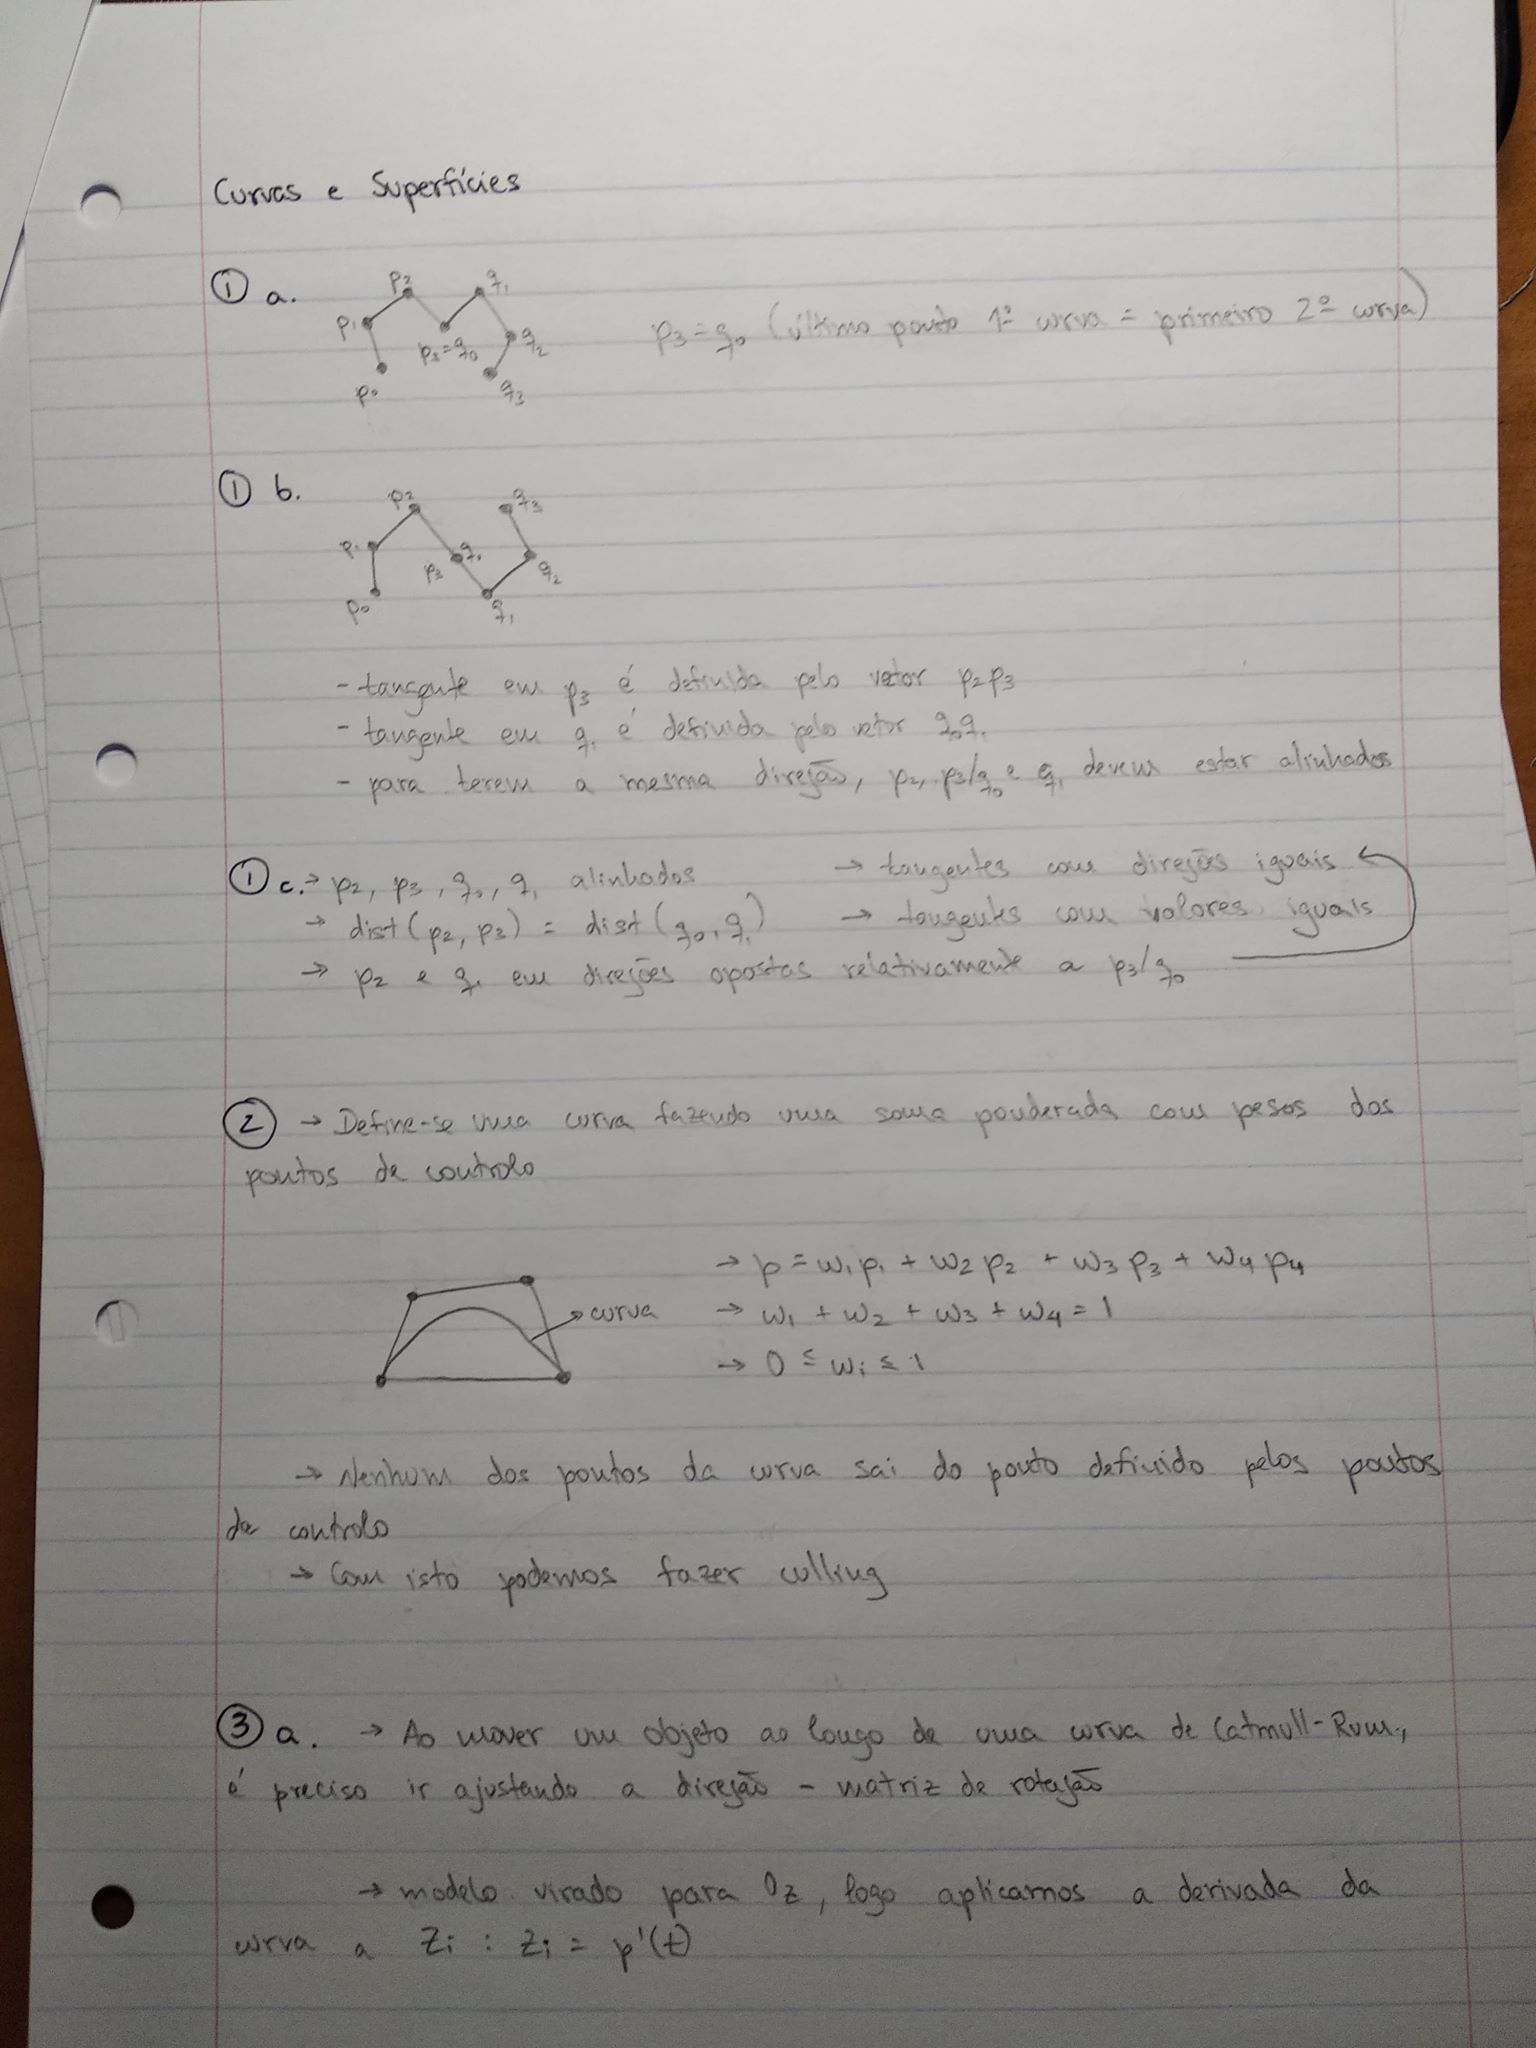 Curvas e Superfícies
① a.
p2
q1
p1
p3=q0
q2
p0
q3
p3=q0 (último ponto 1ª curva = primeiro 2ª curva)
① b.
p2
q3
p1
q0
p3
q2
p0
q1
- tangente em p3 é definida pelo vetor p2p3
- tangente em q1 é definida pelo vetor q0q1
- para terem a mesma direção, p2, p3/q0 e q1 devem estar alinhados
① c. → p2, p3, q0, q1 alinhados → tangentes com direções iguais
→ dist(p2, p3) = dist(q0, q1) → tangentes com valores iguais
→ p2 e q1 em direções opostas relativamente a p3/q0
② → Define-se uma curva fazendo uma soma ponderada com pesos dos
pontos de controlo
→ p = w1p1 + w2p2 + w3p3 + w4p4
curva
→ w1 + w2 + w3 + w4 = 1
→ 0 ≤ wi ≤ 1
→ Nenhum dos pontos da curva sai do ponto definido pelos pontos
de controlo
→ Com isto podemos fazer culling
③ a. → Ao mover um objeto ao longo de uma curva de Catmull-Rum,
é preciso ir ajustando a direção - matriz de rotação
→ modelo virado para Oz, logo aplicamos a derivada da
curva a Zi : Zi = p'(t)